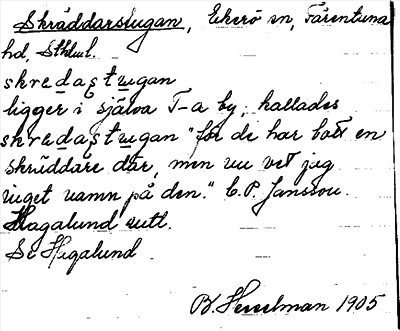 Skräddarstugan, Ekerö sn, Färentuna
hd, Sthlm l.
skredastugan
ligger i själva T-a by; kallades
skredastugan "för de har bott en
skräddare där, men nu vet jag
inget namn på den." C.P. Jansson.
Hagalund utt.
Se Higalund
B. Hesselman 1905